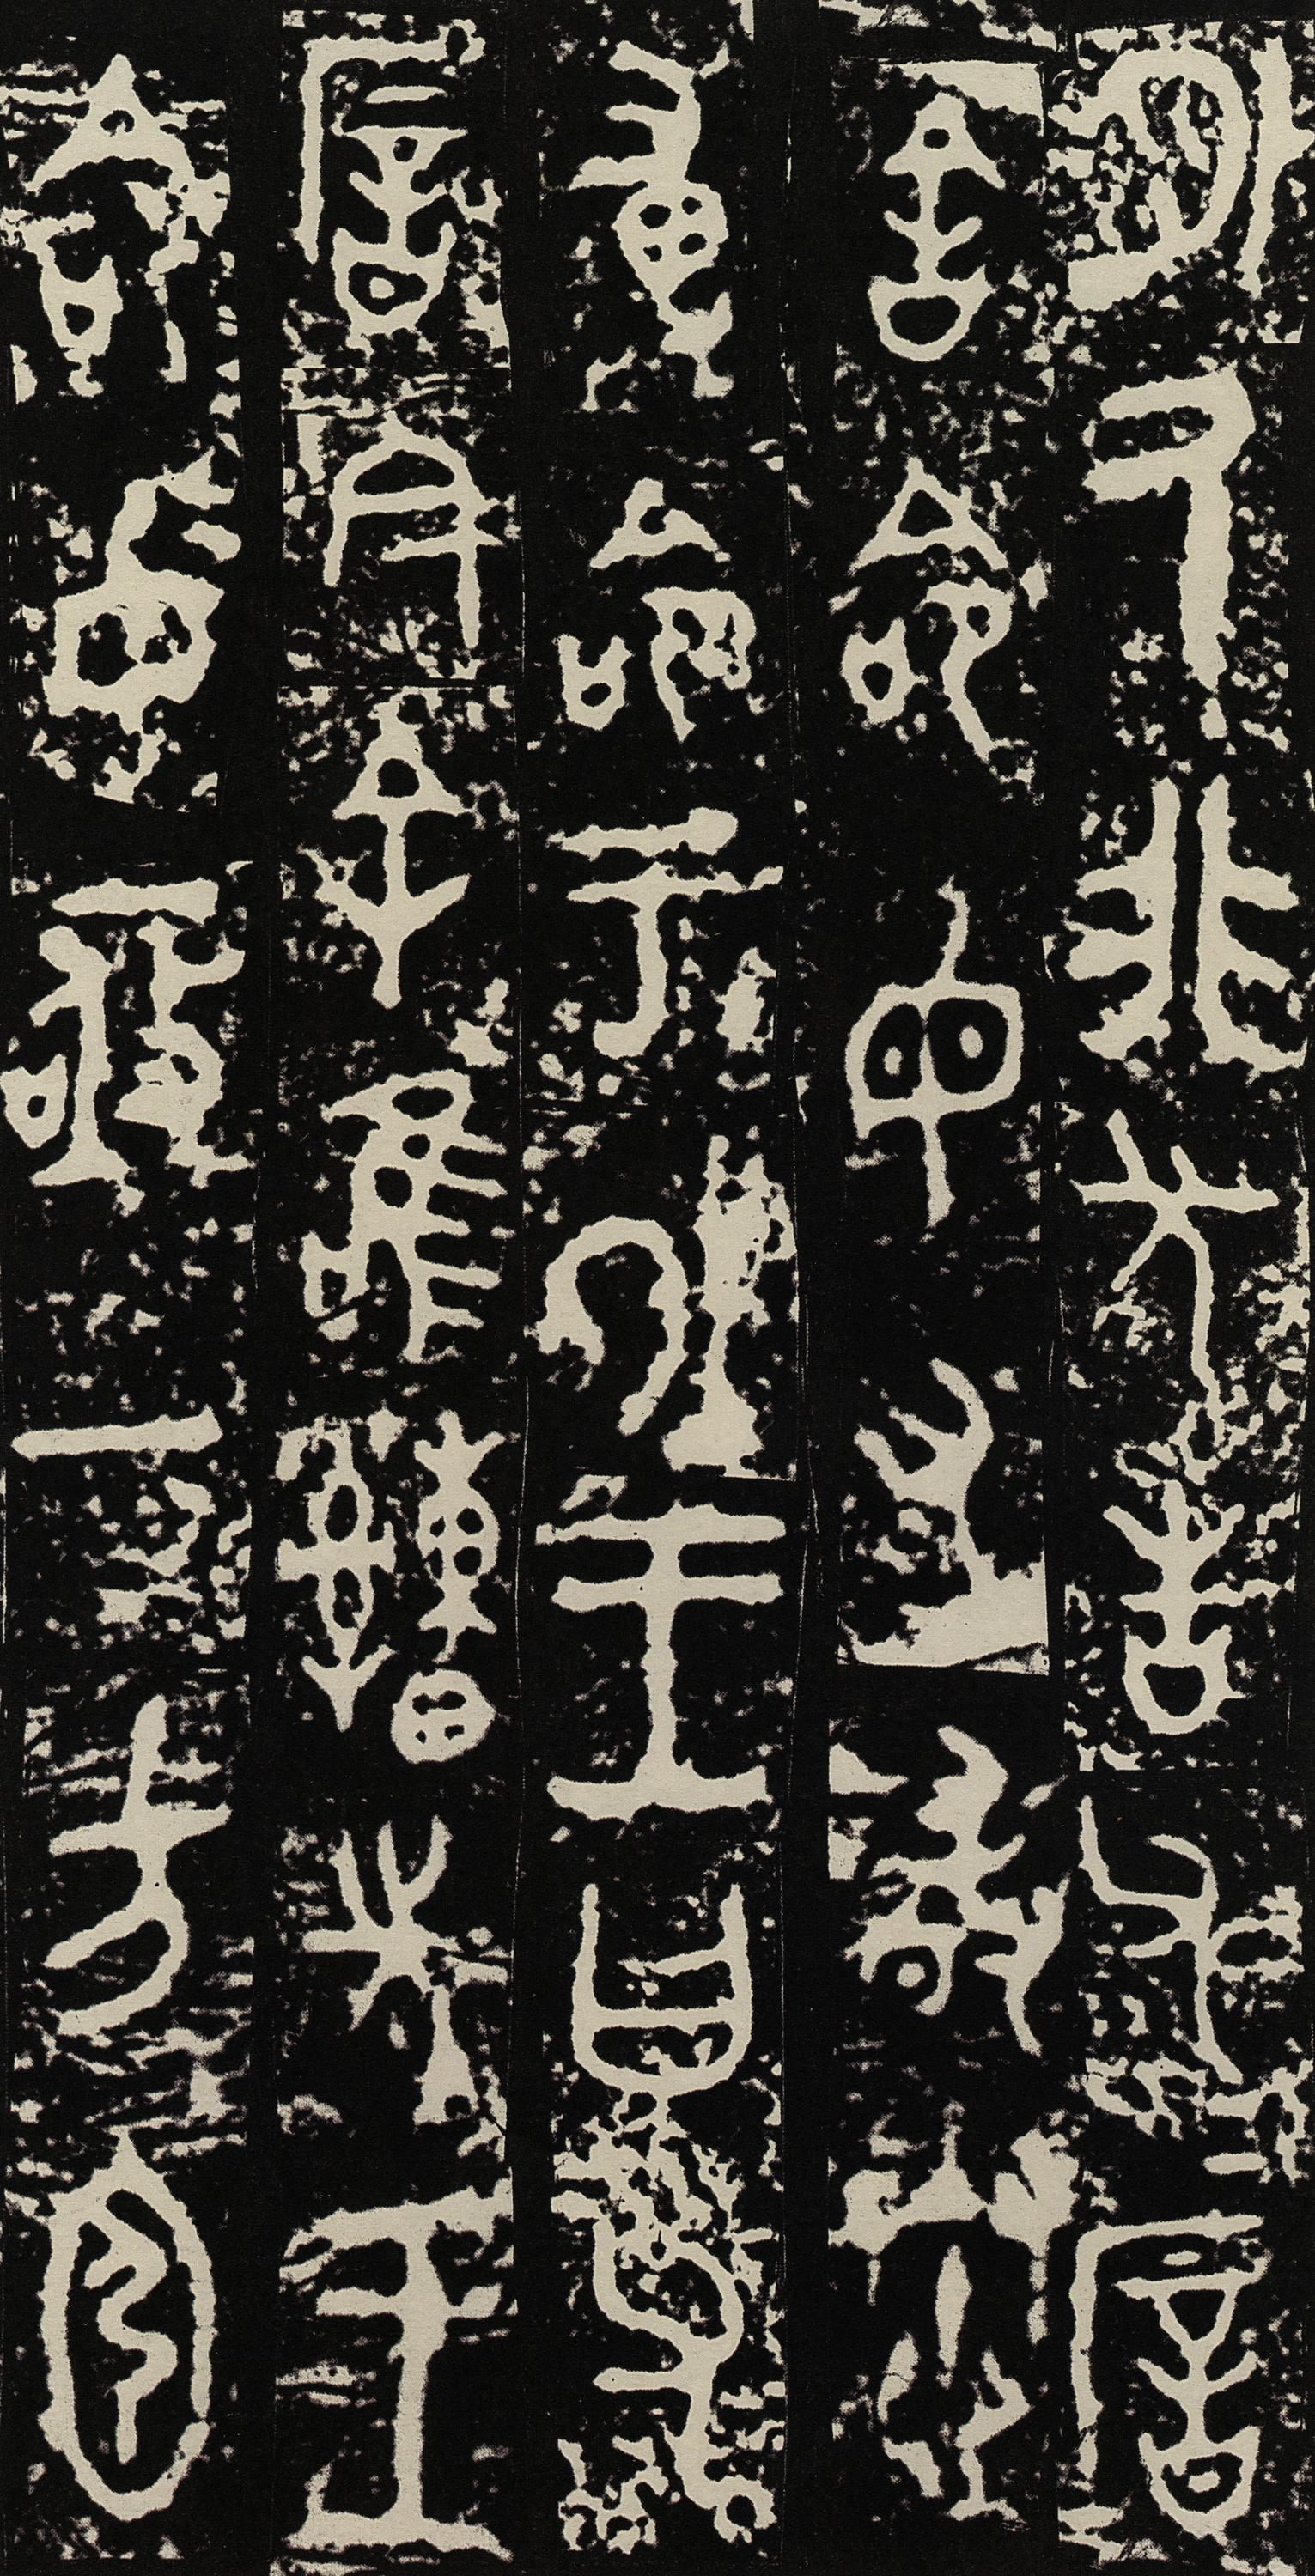 外厥非先告父厝
舍命毋又敢惷
尃命于外王曰父
厝今余唯先王
命女亟一方